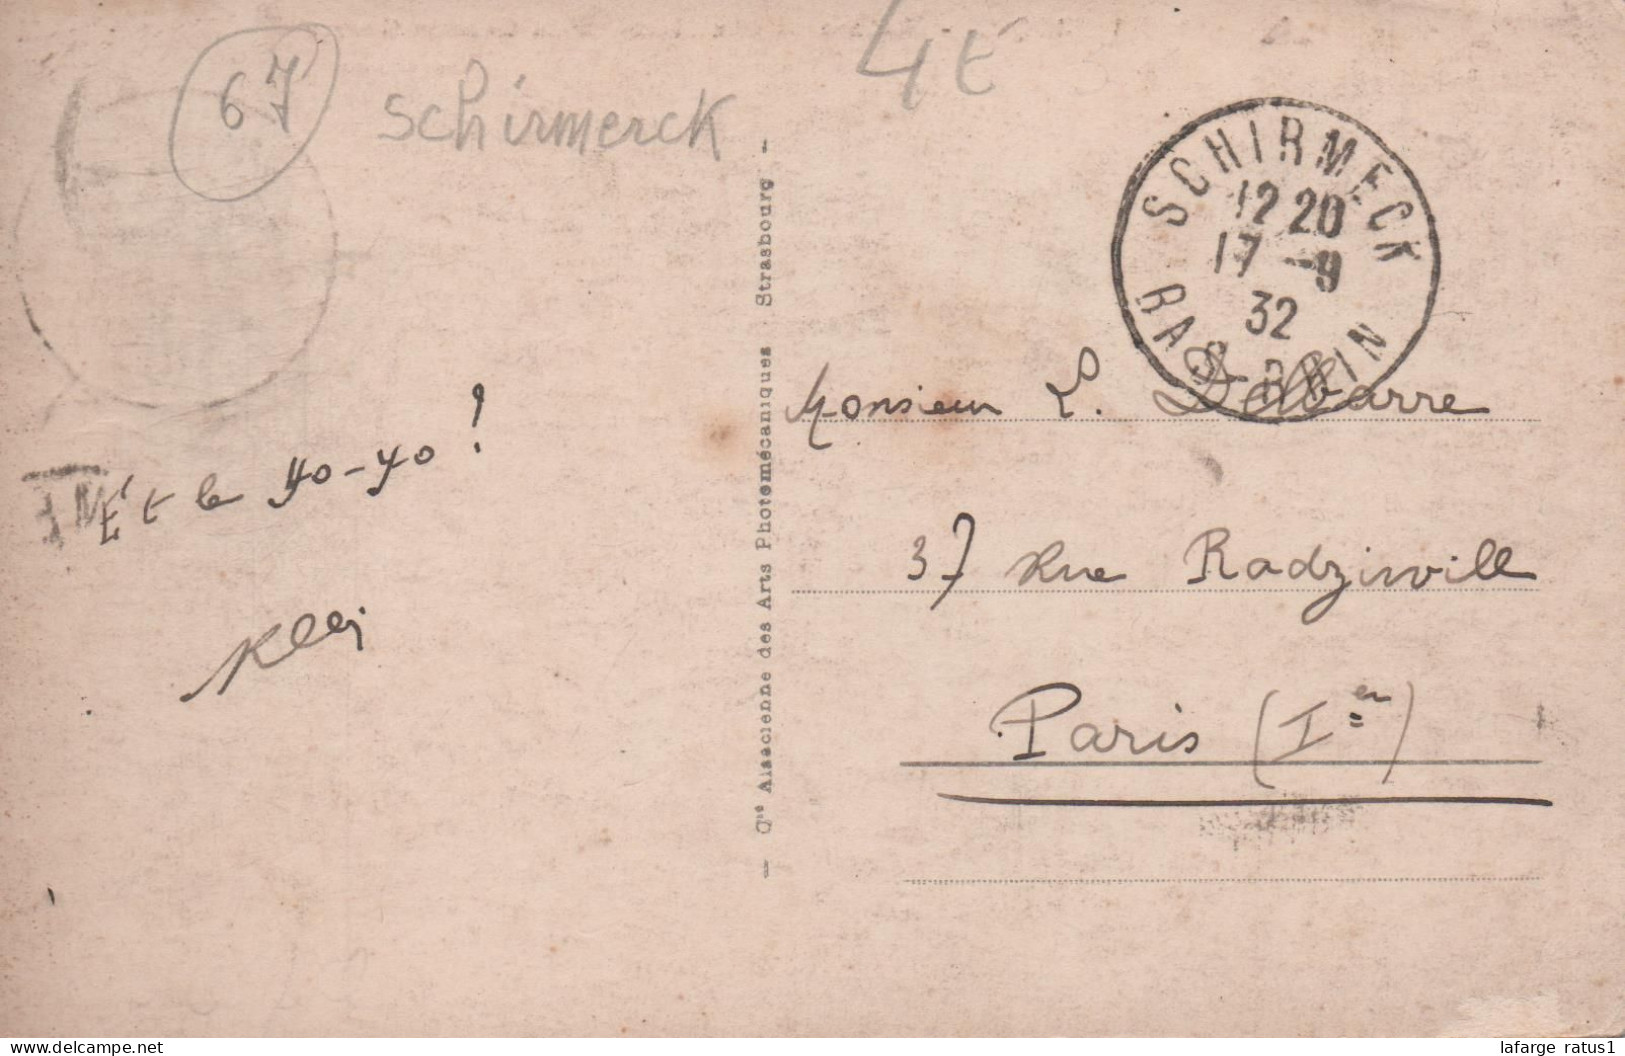 67
schirmerck
4€
SCHIRMECK
12 20
17 -9
32
BAS-RHIN
Monsieur L. Delbarre
Et le yo-yo !
37 Rue Radziwill
Paris (Ier)
— Cie Alsacienne des Arts Photomécaniques Strasbourg —
www.delcampe.net
lafarge_ratus1